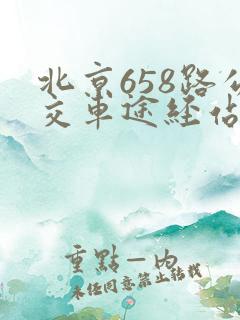 北京658路公
交車途經佔
重點—内
未经同意禁止转载